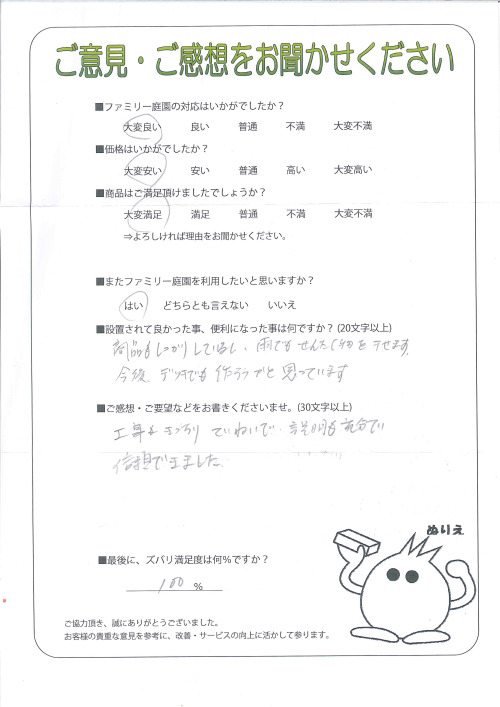 ご意見・ご感想をお聞かせください
■ファミリー庭園の対応はいかがでしたか？
大変良い 良い 普通 不満 大変不満
■価格はいかがでしたか？
大変安い 安い 普通 高い 大変高い
■商品はご満足頂けましたでしょうか？
大変満足 満足 普通 不満 大変不満
⇒よろしければ理由をお聞かせください。
■またファミリー庭園を利用したいと思いますか？
はい どちらとも言えない いいえ
■設置されて良かった事、便利になった事は何ですか？(20文字以上)
商品もしっかりしているし、雨でもせんたく物を干せます。
今後、デッキでも作ろうかと思っています
■ご感想・ご要望などをお書きくださいませ。(30文字以上)
工事もきっちり ていねいで、説明も充分で
できました
■最後に、ズバリ満足度は何％ですか？
100 ％
ぬりえ
ご協力頂き、誠にありがとうございました。
お客様の貴重な意見を参考に、改善・サービスの向上に活かして参ります。